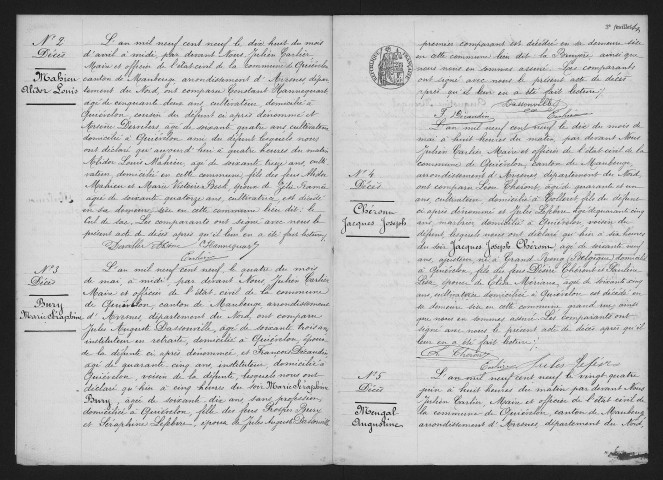 N° 2
Décès
Mahieu
Aldor Louis
L'an mil neuf cent neuf le dix huit du mois
d'avril à midi, par devant Nous, Julien Carlier
Maire et officier de l'état civil de la commune de Quiévelon
canton de Maubeuge arrondissement d'Avesnes dépar-
tement du Nord, ont comparu Constant Hannequart
âgé de cinquante deux ans, cultivateur, domicilié à
Quiévelon, cousin du défunt ci après dénommé et
âgé de soixante quatre ans cultivateur
domicilié à Quiévelon, cousin du défunt lesquels nous
ont déclaré qu'aujourd'hui à quatre heures du matin
Louis Mahieu, âgé de soixante treize ans, culti-
vateur, domicilié en cette commune, fils des feus
Mahieu et Marie Victoire époux de
âgée de soixante quatorze ans, cultivatrice, est décédé
en sa demeure sise en cette commune lieu dit: le
Cul de sac. Les comparants ont signé avec nous le
présent acte de décès après qu'il leur en a été fait lecture
Hannequart
Carlier
N° 3
Décès
Bury
Marie Séraphine
L'an mil neuf cent neuf, le quatre du mois
de mai, à midi, par devant Nous, Julien Carlier
Maire et officier de l'état civil de la commune
de Quiévelon, canton de Maubeuge arrondissement
d'Avesnes département du Nord, ont comparu
Jules Auguste Dassonville, âgé de soixante trois ans,
instituteur en retraite, domicilié à Quiévelon, époux
de la défunte ci après dénommée et François
âgé de quarante cinq ans instituteur, domicilié à
Quiévelon, voisin de la défunte, lesquels nous ont
déclaré qu'hier à cinq heures du soir Marie Séraphine
Bury, âgée de soixante dix ans, sans profession,
domiciliée à Quiévelon, fille des feus Bury
et Séraphine Lefebvre, épouse de Jules Auguste Dassonville
2e feuillet
RÉPUBLIQUE FRANÇAISE
premier comparant est décédée en sa demeure sise
en cette commune lieu dit la Bruyère ainsi que
nous nous en sommes assuré. Les comparants
ont signé avec nous le présent acte de décès
après qu'il leur en a été fait lecture
Dassonville
Carlier
N° 4
Décès
Chéront
Jacques Joseph
L'an mil neuf cent neuf le dix du mois de
mai à huit heures du matin, par devant Nous,
Julien Carlier Maire et officier de l'état civil de la
commune de Quiévelon, canton de Maubeuge,
arrondissement d'Avesnes département du Nord,
ont comparu Léon Chéront, âgé de quarante et un
ans, cultivateur, domicilié à fils du défunt
ci après dénommé et Jules Lefebvre, âgé de quarante cinq
ans, domicilié à Quiévelon, voisin du
défunt, lesquels nous ont déclaré qu'hier à dix heures
du soir Jacques Joseph Chéront, âgé de soixante neuf
ans, né à Grand Reng (Belgique) domicilié
à Quiévelon, fils des feus Désiré Chéront et Pauline
époux de âgée de soixante cinq
ans, cultivatrice, domiciliée à Quiévelon est décédé en
sa demeure sise en cette commune grand rue, ainsi
que nous nous en sommes assuré. Les comparants ont
signé avec nous le présent acte de décès après qu'il
leur en a été fait lecture
L. Chéront
Carlier Jules Lefebvre
N° 5
Décès
Mengal
Augustine
L'an mil neuf cent neuf le vingt quatre
juin à huit heures du matin par devant Nous
Julien Carlier, Maire et officier de l'état civil de
la commune de Quiévelon, canton de Maubeuge
arrondissement d'Avesnes, département du Nord,